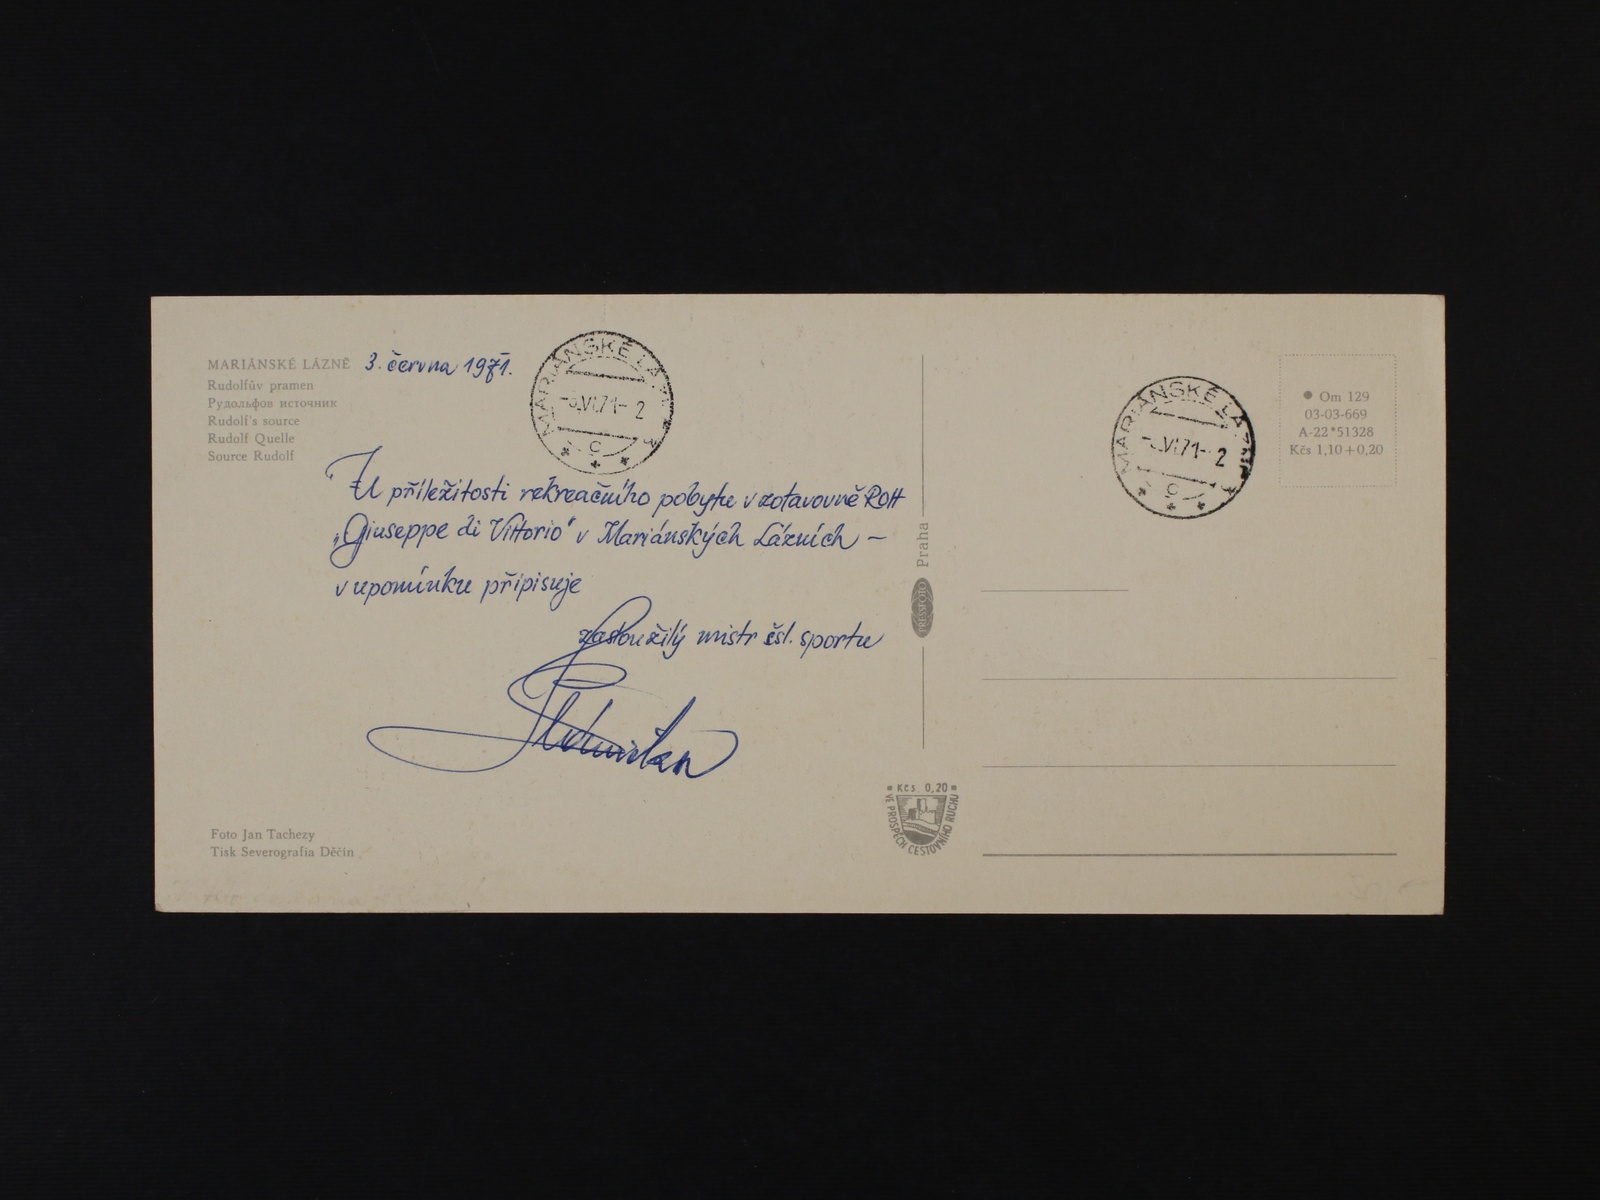 MARIÁNSKÉ LÁZNĚ 3. června 1971.
Rudolfův pramen
Рудольфов источник
Rudolf's source
Rudolf Quelle
Source Rudolf
MARIÁNSKÉ LÁZNĚ
VI.71- 2
c
U příležitosti rekreačního pobytu v zotavovně ROH
„Giuseppe di Vittorio" v Mariánských Lázních –
v upomínku připisuje
zasloužilý mistr čsl. sportu
Foto Jan Tachezy
Tisk Severografia Děčín
PRESSFOTO Praha
Kčs 0,20
VE PROSPĚCH CESTOVNÍHO RUCHU
MARIÁNSKÉ LÁZNĚ
VI.71- 2
c
Om 129
03-03-669
A-22*51328
Kčs 1,10+0,20